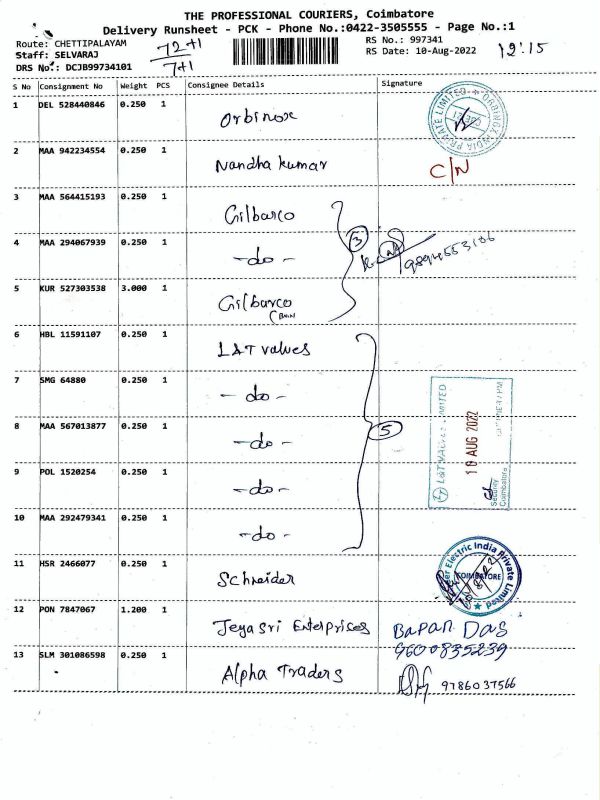 THE PROFESSIONAL COURIERS, Coimbatore
Delivery Runsheet - PCK - Phone No.:0422-3505555 - Page No.:1
Route: CHETTIPALAYAM
Staff: SELVARAJ
DRS No.: DCJB99734101
72+1
7+1
RS No.: 997341
RS Date: 10-Aug-2022
12:15
S No Consignment No Weight PCS Consignee Details Signature
1 DEL 528440846 0.250 1 Orbinox
2 MAA 942234554 0.250 1 Nandha kumar C/N
3 MAA 564415193 0.250 1 Gilbarco
4 MAA 294067939 0.250 1 -do- 3
5 KUR 527303538 3.000 1 Gilbarco
6 HBL 11591107 0.250 1 L&T valves
7 SMG 64880 0.250 1 -do-
8 MAA 567013877 0.250 1 -do- 5
9 POL 1520254 0.250 1 -do-
10 MAA 292479341 0.250 1 -do-
L&T VALVES LIMITED
10 AUG 2022
Security
Coimbatore
11 HSR 2466077 0.250 1 Schneider
Electric India Private Limited
COIMBATORE
12 PON 7847067 1.200 1 Jeyasri Enterprices BAPAN DAS
9600835239
13 SLM 301086598 0.250 1 Alpha Traders 9786037566
ORBINOX INDIA PRIVATE LIMITED